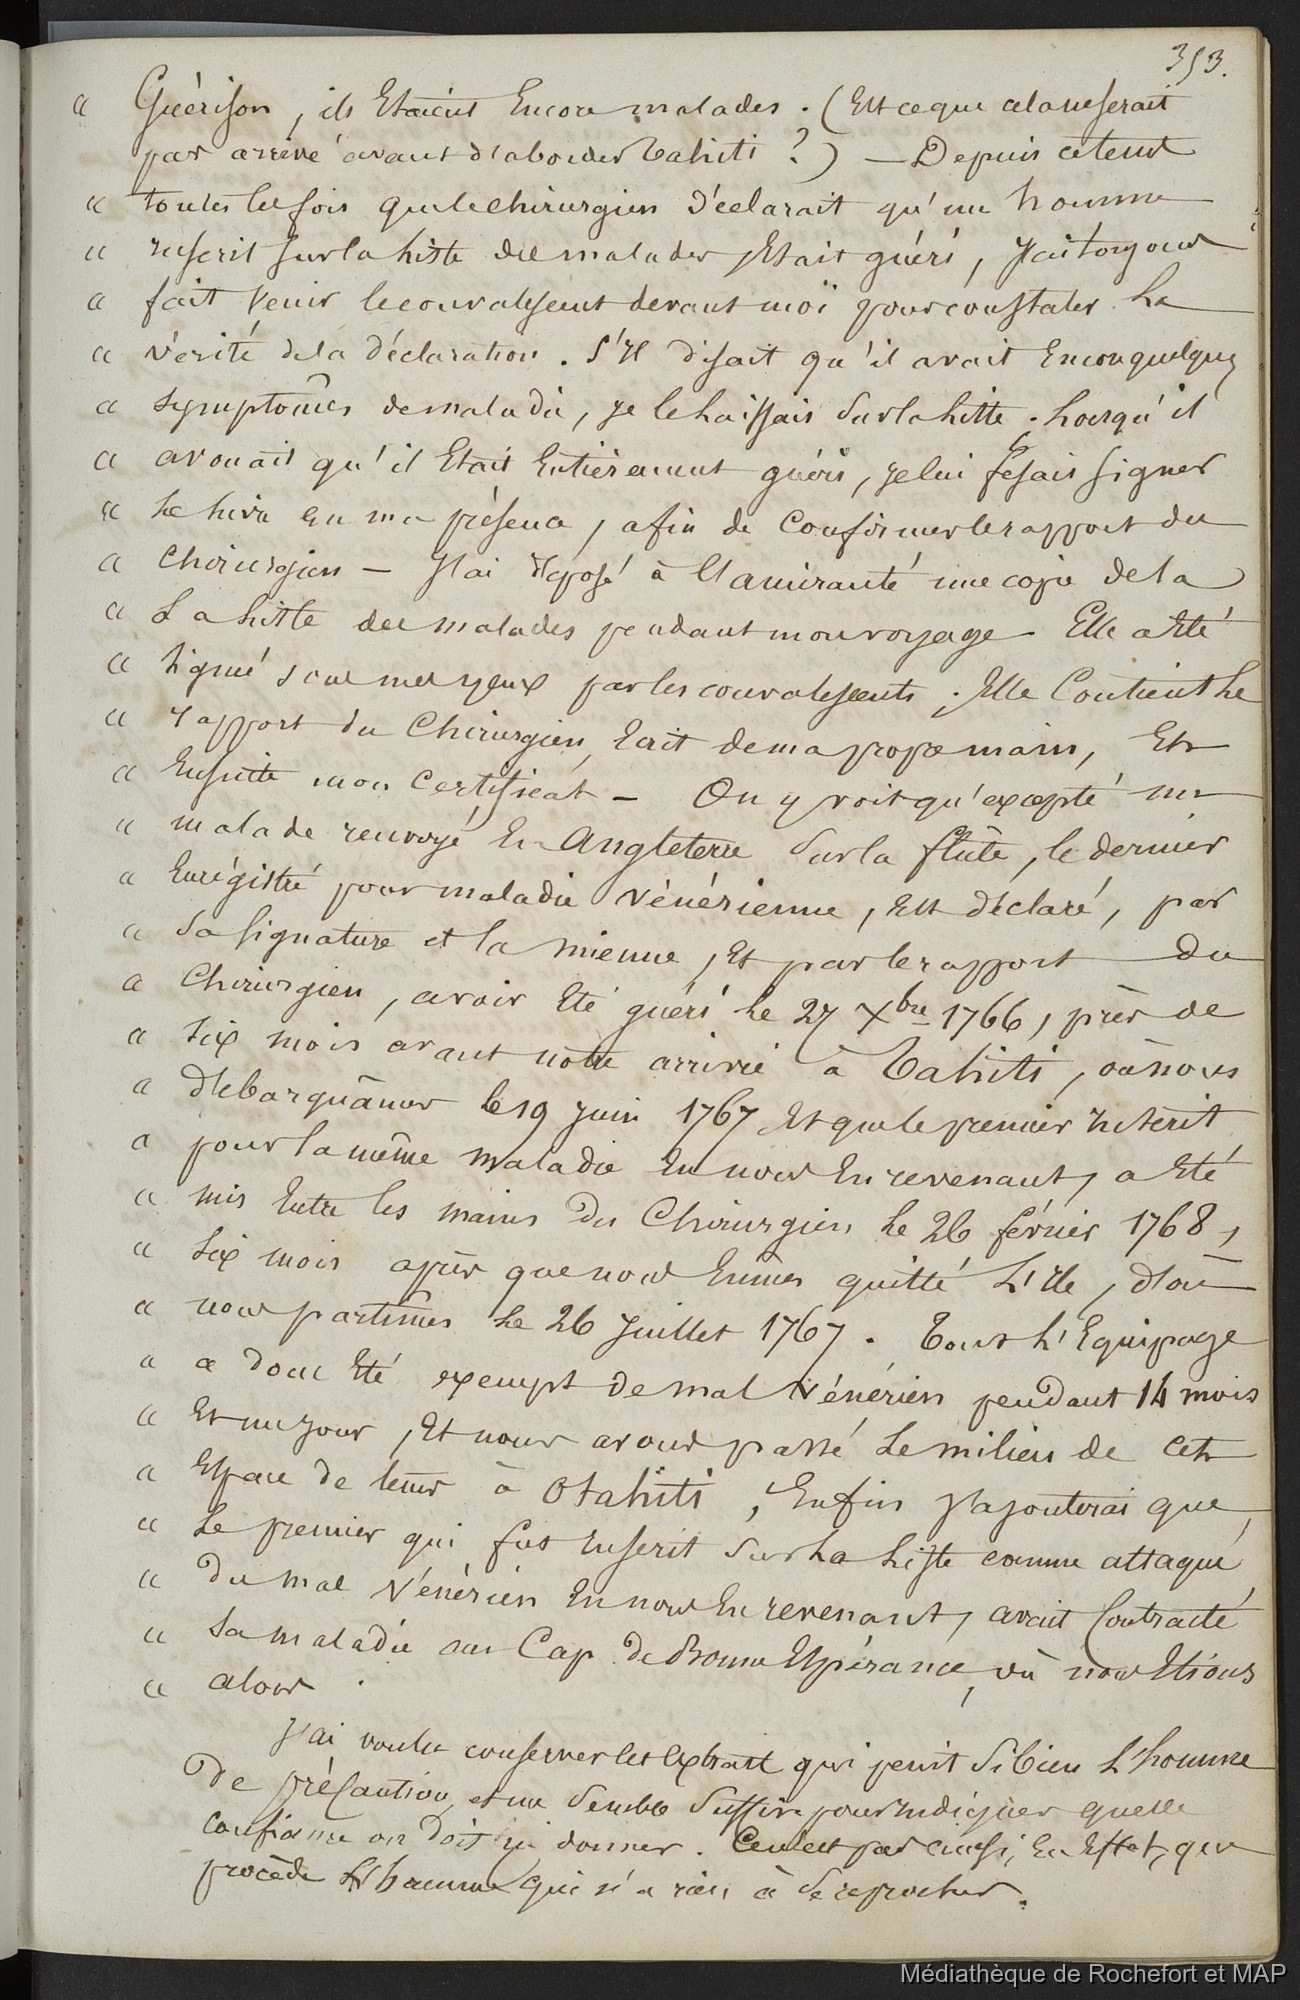 353.
" Guérison, ils Etaient Encore malades. (Est ce que cela ne serait
pas arrivé avant d'aborder Tahiti ?) — Depuis ce tems
" toutes les fois que le chirurgien déclarait qu'un homme
" inscrit sur la liste des malades, Etait guéri, j'ai toujours
" fait venir le convalescent devant moi pour constater la
" vérité de la déclaration. S'il disait qu'il avait Encor quelques
" symptomes de maladie, je le laissais sur la liste. Lorsqu'il
" avouait qu'il Etait Entièrement guéri, je lui fesais signer
" le livre en ma présence, afin de Confirmer le rapport du
" Chirurgien — J'ai déposé à l'amirauté une copie de la
" La liste des malades pendant mon voyage. Elle a Eté
" signé sous mes yeux par les convalescents. Elle Contient le
" rapport du Chirurgien, Ecrit de ma propre main, Et
" Ensuite mon Certificat — On y voit qu'excepté un
" malade renvoyé En Angleterre sur la flûte, le dernier
" Enrégistré pour maladie vénérienne, Est déclaré, par
" sa signature et la mienne, Et par le rapport du
" Chirurgien, avoir Eté guéri le 27 Xbre 1766, près de
" six mois avant notre arrivée à Tahiti, où nous
" débarquâmes le 19 Juin 1767 Et que le premier inscrit
" pour la même maladie En nous En revenant, a Eté
" mis Entre les mains du Chirurgien le 26 février 1768,
" six mois après que nous Eumes quitté L'Ile, d'où
" nous partîmes le 26 Juillet 1767. Tout l'Equipage
" a donc Eté exempt de mal vénérien pendant 14 mois
" Et un jour, Et nous avons passé le milieu de cet
" Espace de tems à Otahiti, Enfin j'ajouterai que,
" le premier qui fut inscrit sur la liste comme attaqué
" du mal vénérien En nous En revenant, avait Contracté
" sa maladie au Cap de Bonne Espérance, où nous Etions
" alors.
J'ai voulu conserver cet Extrait qui peint si bien l'homme
De précaution, et me semble suffire pour indiquer quelle
confiance on doit y donner. Ce n'est pas ainsi, En Effet, que
procède l'homme qui n'a rien à se reprocher.
Médiathèque de Rochefort et MAP